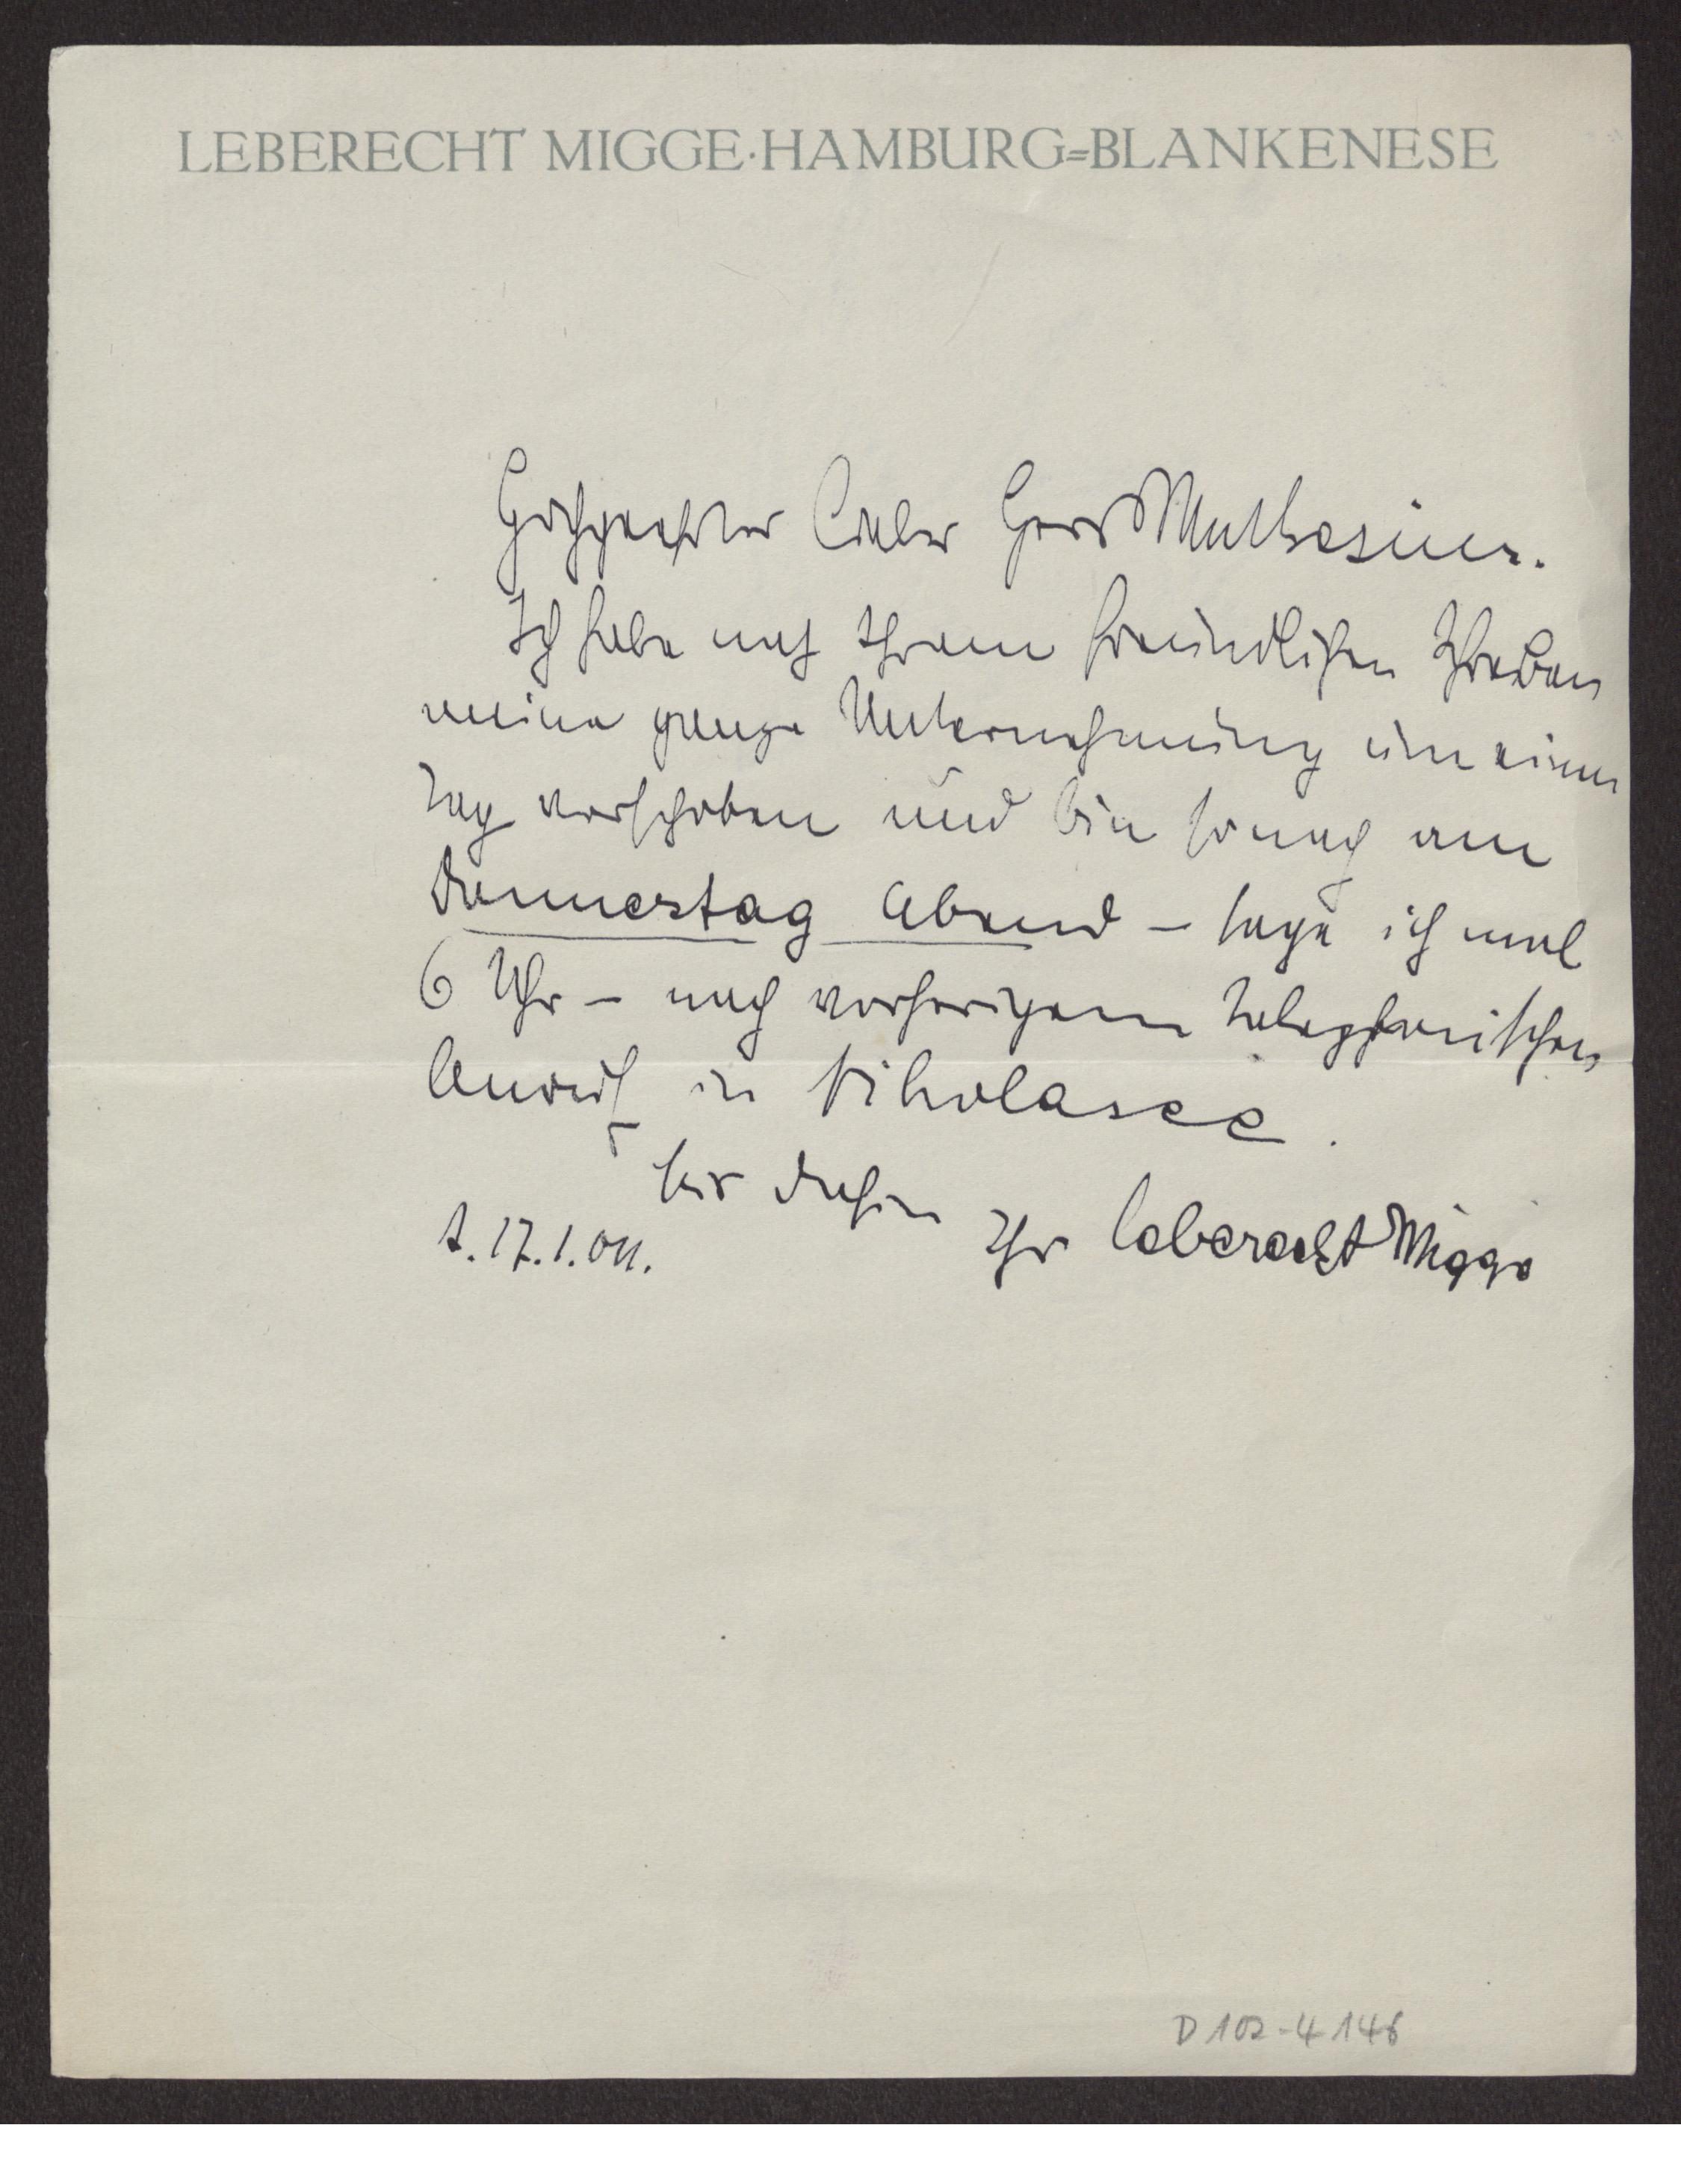 LEBERECHT MIGGE·HAMBURG=BLANKENESE
Hochgeehrter lieber Herr Muthesius.
Ich habe nach Ihrem freundlichen Schreiben
meine ganze Unternehmung um einen
Tag verschoben und bin sonach am
Donnerstag Abend – sage ich mal
6 Uhr – nach vorherigem telephonischen
Anruf in Nikolasee.
bis dahin Ihr Leberecht Migge
17.1.
D 102-4146